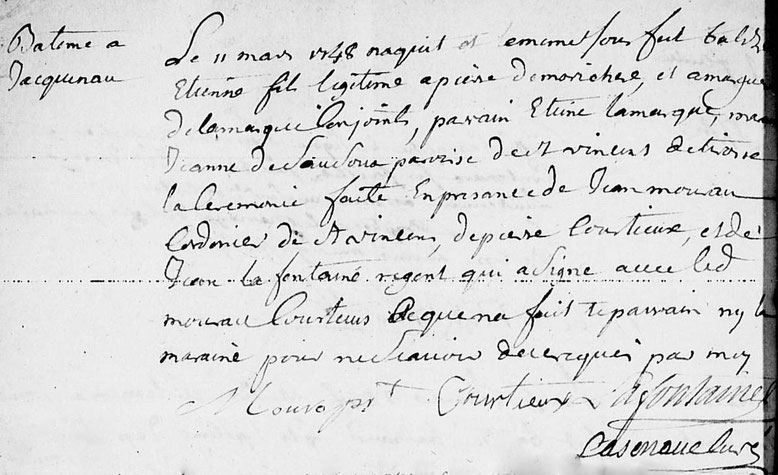 Bateme a
Jacquenau
Le 11 mars 1748 naquit et meme jour fut batise
Etienne fils legitime a pierre demorichere, et a margue
delamarque Conjoints, parain Etiene lamarque, mara
Jeanne de parroise de st vincens de
la Ceremonie faite En presance de Jean mourau
Cordonier de st vincens, de pierre Courtieux, et de
Jean la fontaine regent qui a signe avec led
mourau Courtieus Ce que na fait le parrain ny la
maraine pour ne scavoir de ce requis par moy
Mouro pst Courtieux Lafontaine
Casenaue Curé